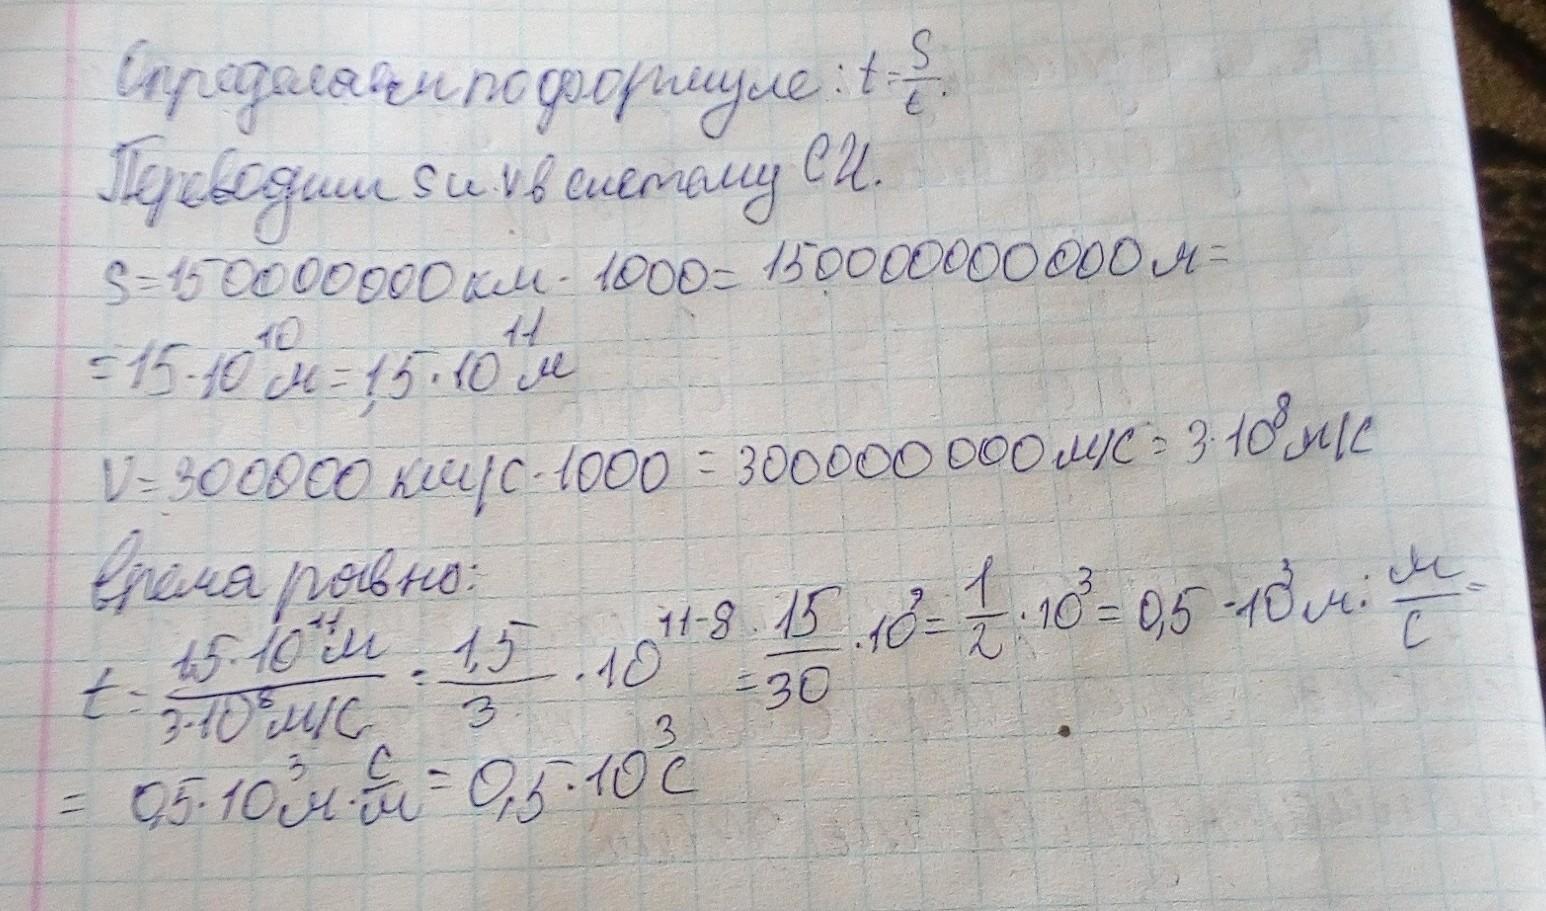 Определяем по формуле: t = S/t.
Переводим S и v в систему СИ.
S = 150000000 км · 1000 = 150000000000 м =
= 15 · 10^10 м = 1,5 · 10^11 м
V = 300000 км/с · 1000 = 300000000 м/с = 3 · 10^8 м/с
Время равно:
t = 1,5 · 10^11 м / 3 · 10^8 м/с = 1,5/3 · 10^11-8 = 15/30 · 10^3 = 1/2 · 10^3 = 0,5 · 10^3 м : м/с =
= 0,5 · 10^3 м · с/м = 0,5 · 10^3 с